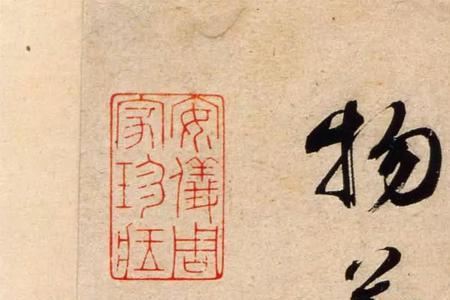 物
安儀周
家珍藏